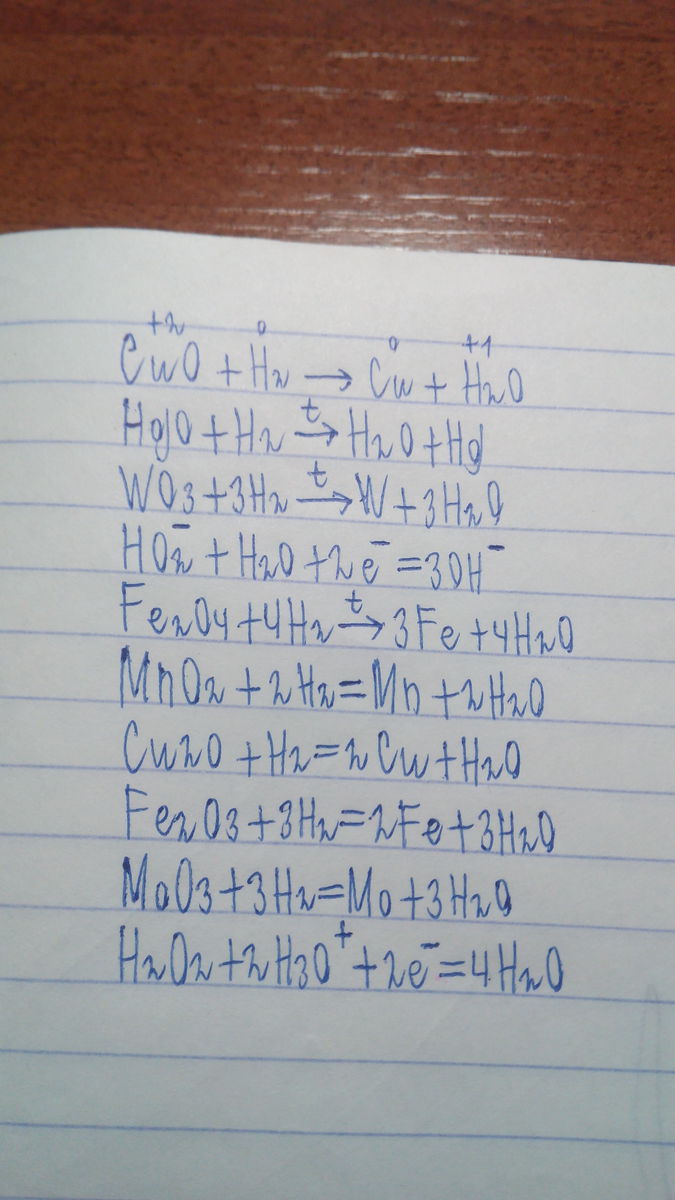 +2 0 0 +1
CuO + H2 → Cu + H2O
HgO + H2 t→ H2O + Hg
WO3 + 3H2 t→ W + 3H2O
HO2⁻ + H2O + 2e⁻ = 3OH⁻
Fe2O4 + 4H2 t→ 3Fe + 4H2O
MnO2 + 2H2 = Mn + 2H2O
Cu2O + H2 = 2Cu + H2O
Fe2O3 + 3H2 = 2Fe + 3H2O
MoO3 + 3H2 = Mo + 3H2O
H2O2 + 2H3O⁺ + 2e⁻ = 4H2O